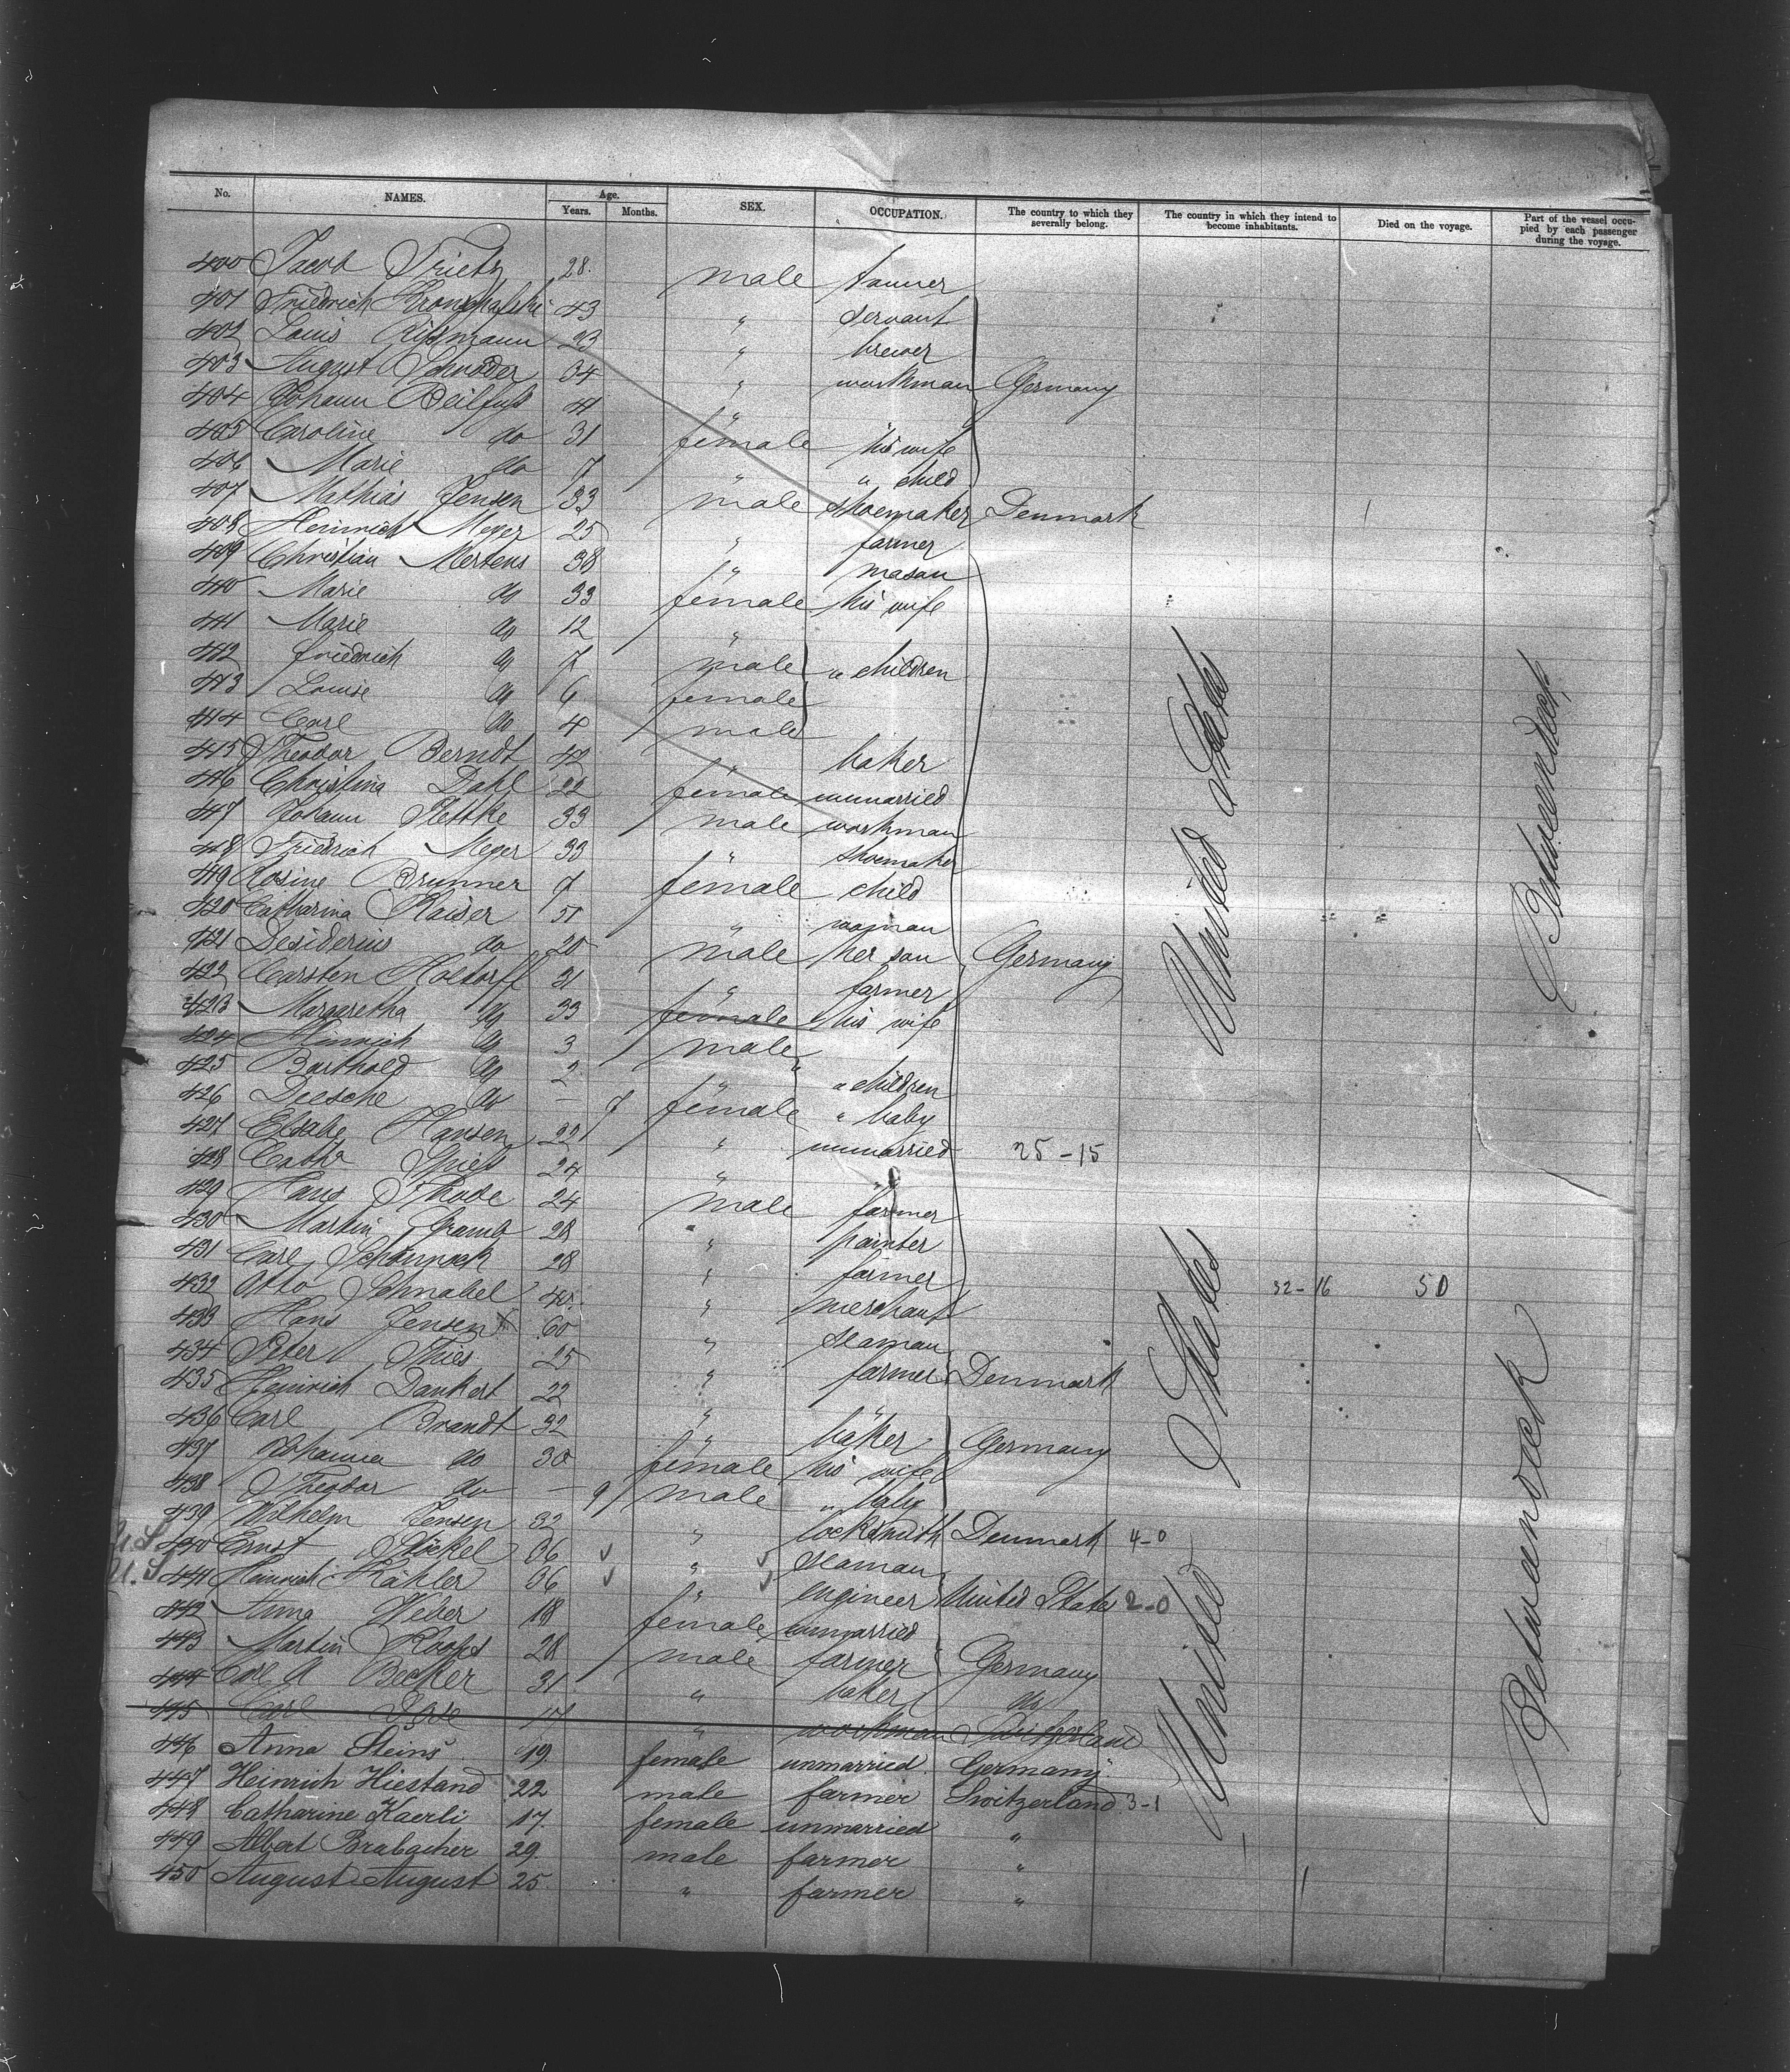 No. NAMES. Age. Years. Months. SEX. OCCUPATION. The country to which they severally belong. The country in which they intend to become inhabitants. Died on the voyage. Part of the vessel occupied by each passenger during the voyage.
400 Jacob 28. male tanner
401 Friedrich 43 " servant
402 Louis 23 " brewer
403 August Schröder 34 " workman Germany
404 Johann Beilfuss 41 "
405 Caroline do 31 female his wife
406 Marie do 7 " " child
407 Mathias Jensen 33 male shoemaker Denmark
408 Heinrich Meyer 25 " farmer
409 Christian Mertens 38 " mason
410 Marie do 33 female his wife
411 Marie do 12 "
412 Friedrich do 7 male " children
413 Louise do 6 female
414 Carl do 4 male
415 Theodor Berndt 42 " baker
416 Christina Dahl 22 female unmarried
417 Johann 33 male workman
418 Friedrich Meyer 33 " shoemaker
419 Rosine Brunner 7 female child
420 Catharina Kaiser 51 " woman
421 Desiderius do 20 male her son Germany
422 Carsten Holtorff 31 " farmer
423 Margaretha do 33 female his wife
424 Hinrich do 3 male
425 Barthold do 2 " " children
426 Deesche do — 9 female " baby
427 Elsabe Hansen 22 " unmarried 25-15
428 Cathr Spiess 24 " "
429 Hans Rhode 24 male farmer
430 Martin 28 " painter
431 Carl 28 " farmer
432 Otto Schnabel 40 " merchant 32-16 50
433 Hans Jensen x 60 " seaman
434 Peter Thies 25 " farmer Denmark
435 Heinrich Dankert 22 "
436 Carl Brandt 32 " baker Germany
437 Johanna do 30 female his wife
438 Theodor do — 9 male " baby
439 Wilhelm Jensen 32 " locksmith Denmark 4-0
U.S. 440 Ernst Stickel 36 " seaman
U.S. 441 Heinrich Kähler 36 " engineer United State 2-0
442 Anna Weber 18 female unmarried
443 Martin Koops 28 male farmer Germany
444 Carl A Becker 31 " baker do
445 Carl 17 " workman Switzerland
446 Anna Steins 19. female unmarried. Germany
447 Heinrich Hiestand 22 male farmer Switzerland 3-1
448 Catharine Kaerli 17. female unmarried "
449 Albert Brabacher 29. male farmer "
450 August August 25. " farmer "
United States
United States
Betweendeck
Betweendeck